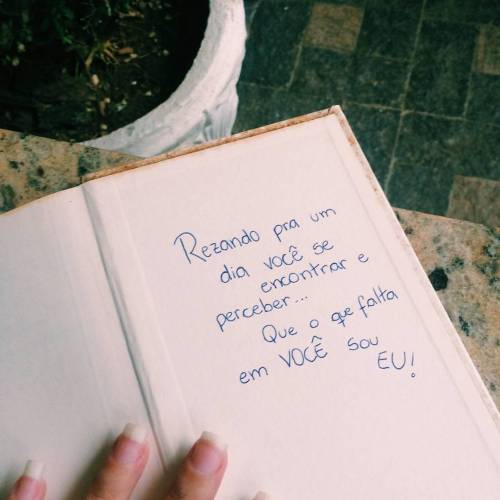 Rezando pra um
dia você se
encontrar e
perceber...
Que o que falta
em VOCÊ sou
EU!